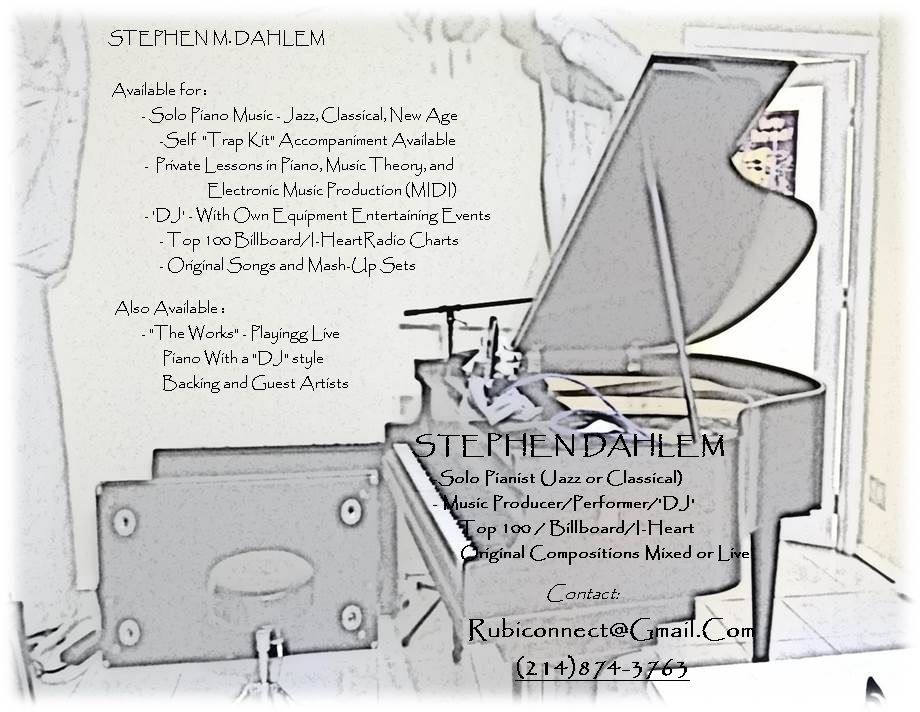 STEPHEN M. DAHLEM
Available for :
- Solo Piano Music - Jazz, Classical, New Age
-Self "Trap Kit" Accompaniment Available
- Private Lessons in Piano, Music Theory, and
Electronic Music Production (MIDI)
- 'DJ' - With Own Equipment Entertaining Events
- Top 100 Billboard/I-HeartRadio Charts
- Original Songs and Mash-Up Sets
Also Available :
- "The Works" - Playingg Live
Piano With a "DJ" style
Backing and Guest Artists
STEPHEN DAHLEM
-Solo Pianist (Jazz or Classical)
- Music Producer/Performer/'DJ'
Top 100 / Billboard/I-Heart
Original Compositions Mixed or Live
Contact:
Rubiconnect@Gmail.Com
(214)874-3763